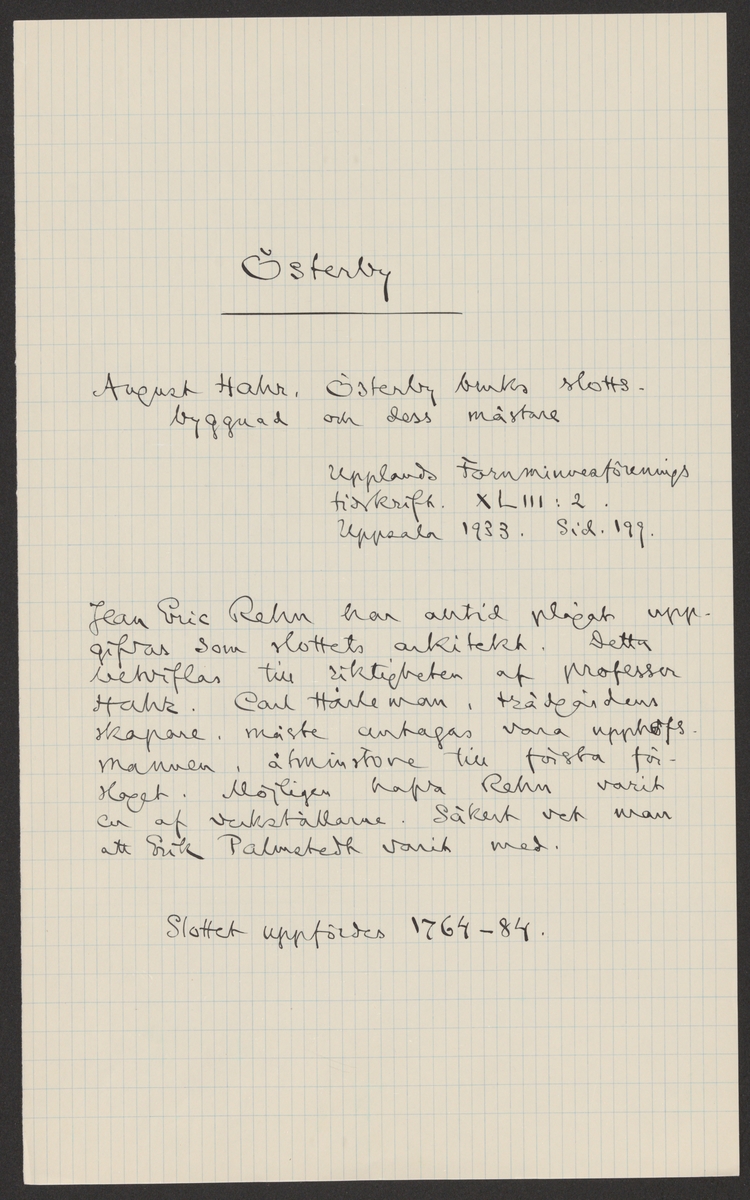 Österby
August Hahr, Österby bruks slotts-
byggnad och dess mästare
Upplands Fornminnesförenings
tidskrift. XLIII:2.
Uppsala 1933. Sid. 199.
Jean Eric Rehn har alltid plägat upp-
gifvas som slottets arkitekt. Detta
betviflas till riktigheten af professor
Hahr. Carl Hårleman, trädgårdens
skapare, måste antagas vara upphofs-
mannen, åtminstone till första för-
slaget. Möjligen hafva Rehn varit
en af verkställarne. Säkert vet man
att Erik Palmstedt varit med.
Slottet uppfördes 1764-84.